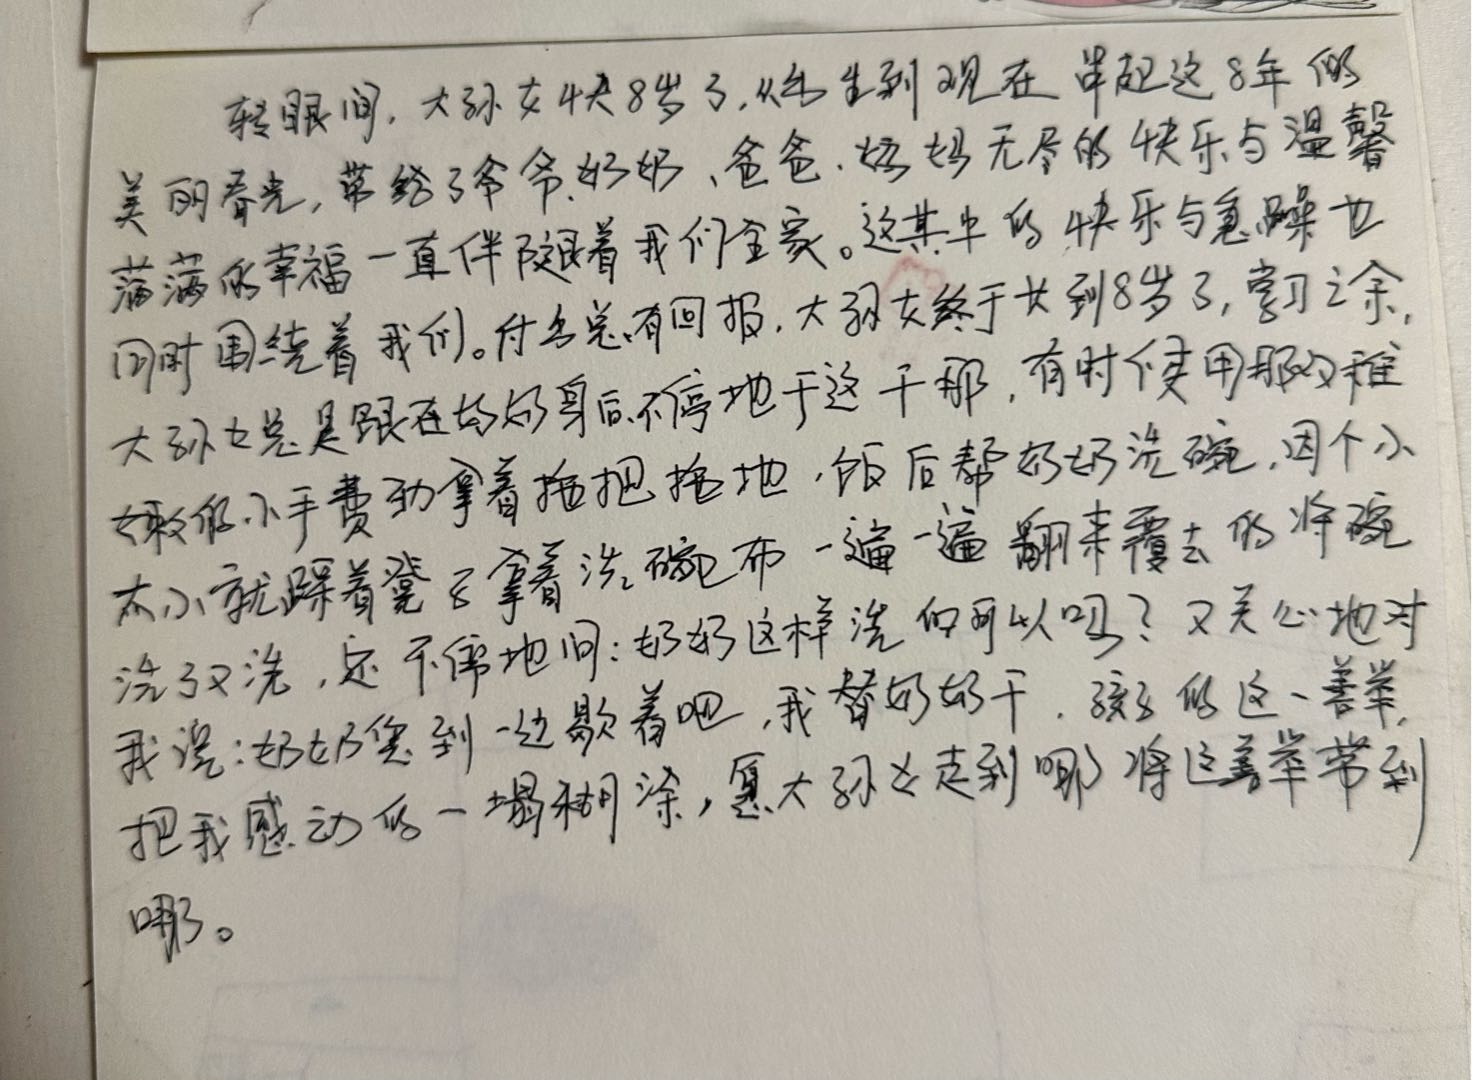 转眼间，大孙女快8岁了，从出生到现在串起这8年的
美丽春光，带给了爷爷、奶奶、爸爸、妈妈无尽的快乐与温馨
满满的幸福一直伴随着我们全家。这其中的快乐与急躁也
同时围绕着我们。付出总有回报，大孙女终于长到8岁了，学习之余，
大孙女总是跟在奶奶身后不停地干这干那，有时使用那双稚
嫩的小手费劲拿着拖把拖地，饭后帮奶奶洗碗，因个小
太小就踩着凳子拿着洗碗布一遍一遍翻来覆去的将碗
洗了又洗，还不停地问：奶奶这样洗的可以吗？又关心地对
我说：奶奶您到一边歇着吧，我替奶奶干，孩子的这一善举，
把我感动的一塌糊涂，愿大孙女走到哪将这善举带到
哪。